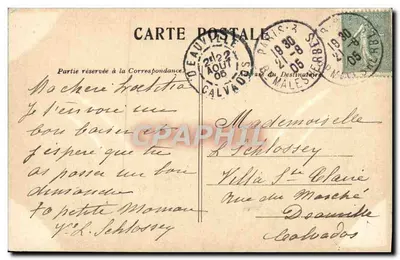 CARTE POSTALE
Partie réservée à la Correspondance
DEAUVILLE
22
AOUT
05
CALVADOS
PARIS-3
19 30
21-8
05
R. MALESHERBES
19 30
21-8
05
Ma chère
Je t'envoie un
bon baiser
j'espère que tu
as passé un bon
dimanche
ta petite Maman
L. Schlossey
Mademoiselle
L Schlossey
Villa Ste Claire
Rue du Marché
Deauville
Calvados
CPAPHIL